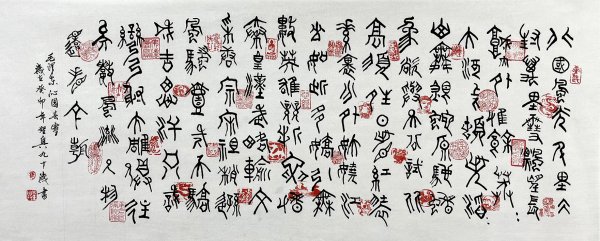 北國風光千里冰
封萬里雪飄望長
城內外惟餘莽〻
大河上下頓失滔〻
山舞銀蛇原馳蠟
象欲與天公試比
高須晴日看紅裝
素裹分外妖嬈江
山如此多嬌引無
數英雄競折腰惜
秦皇漢武略輸文
采唐宗宋祖稍遜
風騷一代天驕
成吉思汗只識
彎弓射大雕俱往
矣數風流人物
還看今朝
毛澤東沁園春雪
癸卯年